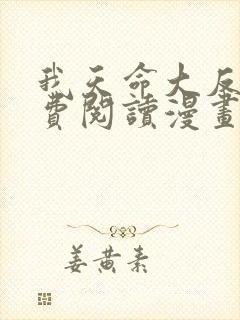 我天命大反
費閱讀漫畫
姜黃素